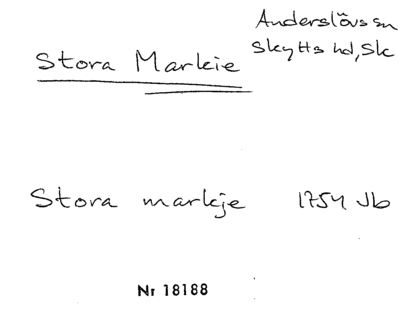 Anderslövs sn
Skytts hd, Sk
Stora Markie
Stora markje 1754 Jb
Nr 18188